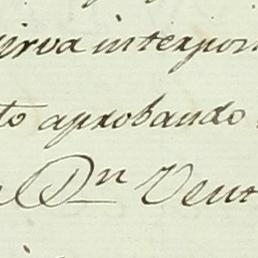 sirva interpon
to aprobando
Dn Vent